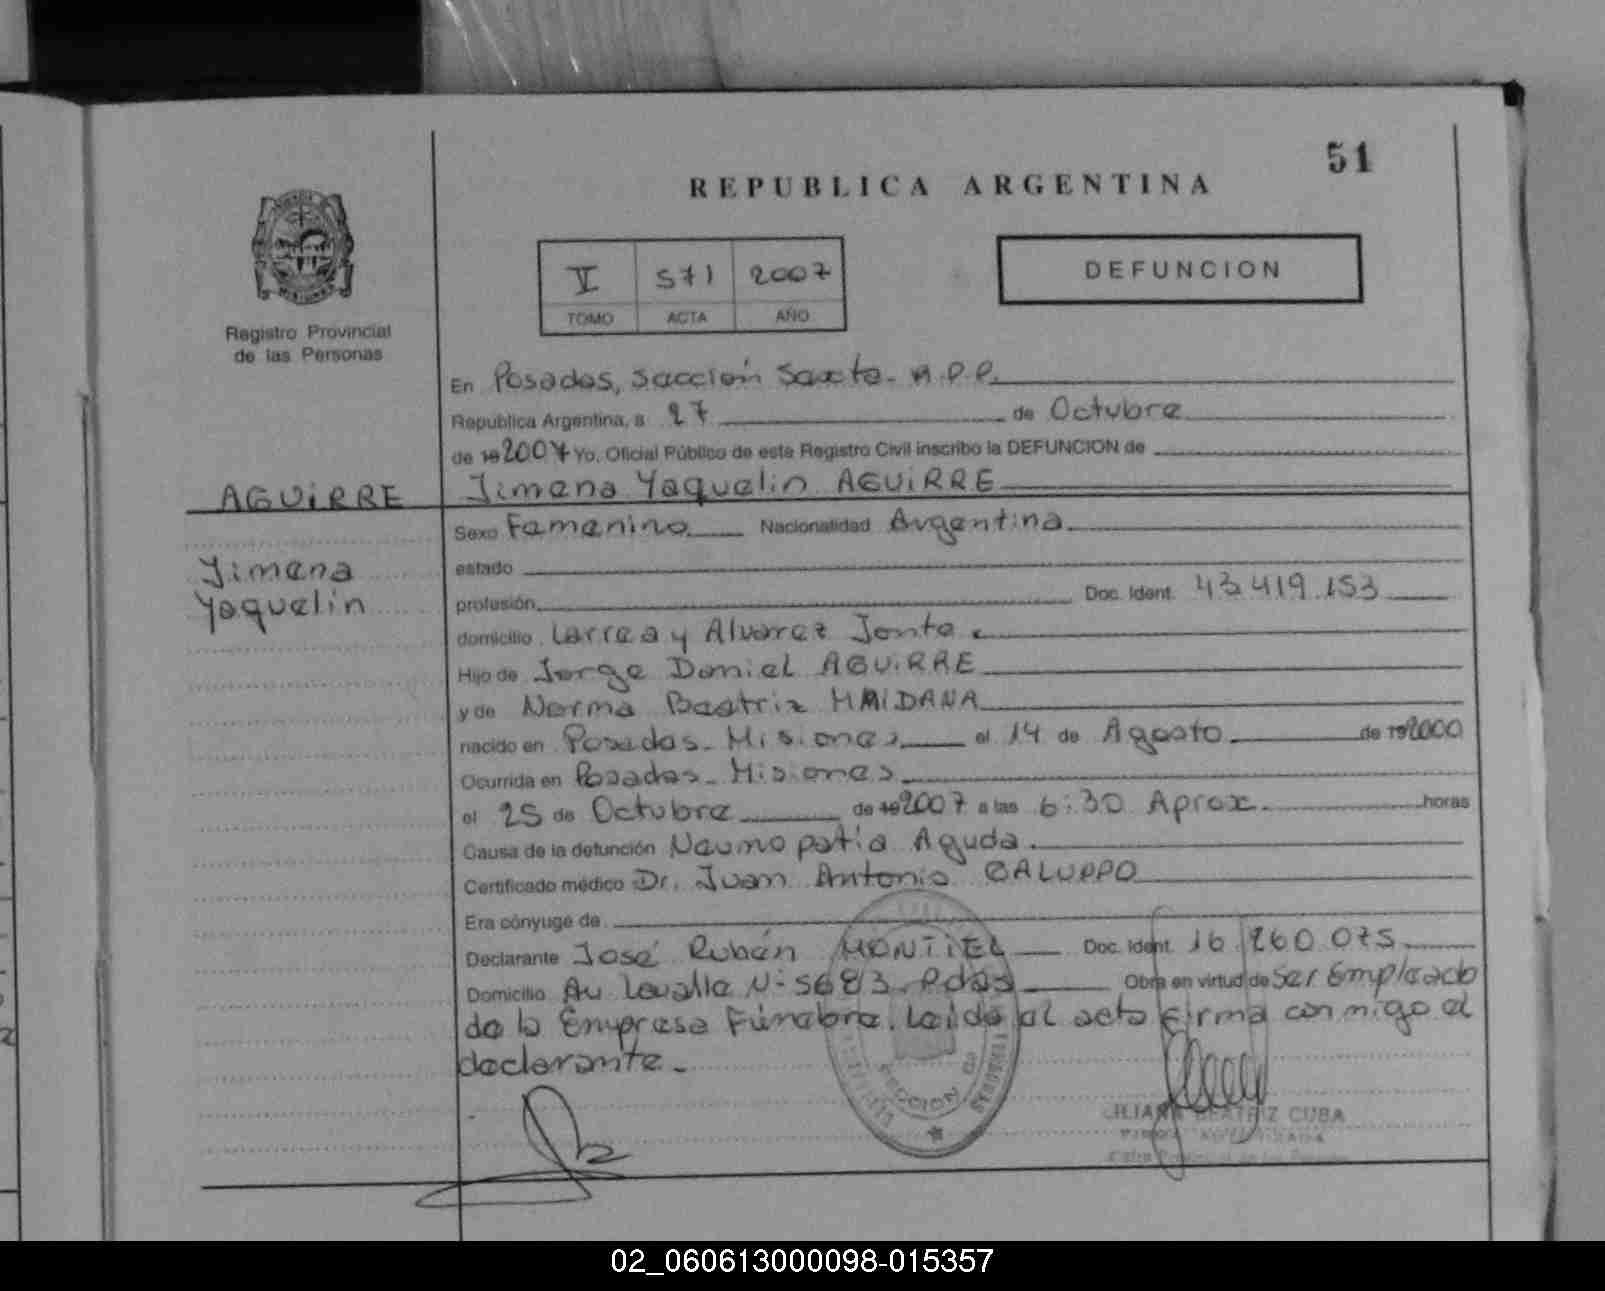 51
REPUBLICA ARGENTINA
V 571 2007
TOMO ACTA AÑO
DEFUNCION
Registro Provincial
de las Personas
En Posadas, Sección Sexta- M.P.P.
Republica Argentina, a 27 de Octubre
de 19 2007 Yo, Oficial Público de este Registro Civil inscribo la DEFUNCION de
AGUiRRE Jimena Yaquelin AGUiRRE
Sexo Femenino Nacionalidad Argentina
Jimena
Yaquelin
estado
profesión Doc. Ident. 43.419.153
domicilio Larrea y Alvarez Jonte.
Hijo de Jorge Daniel AGUiRRE
y de Norma Beatriz MAIDANA
nacido en Posadas- Misiones el 14 de Agosto de 19 2000
Ocurrida en Posadas- Misiones
el 25 de Octubre de 19 2007 a las 6:30 Aprox. horas
Causa de la defunción Neumopatía Aguda.
Certificado médico Dr. Juan Antonio GALUPPO
Era cónyuge de
Declarante José Rubén MONTIEL Doc. Ident. 16.260.075
Domicilio Av Lavalle N- 5683. Pdas Obra en virtud de ser Empleado
de la Empresa Fúnebre. Leída el acta firma conmigo el
declarante.-
SECCION
LILIANA BEATRIZ CUBA
02_060613000098-015357